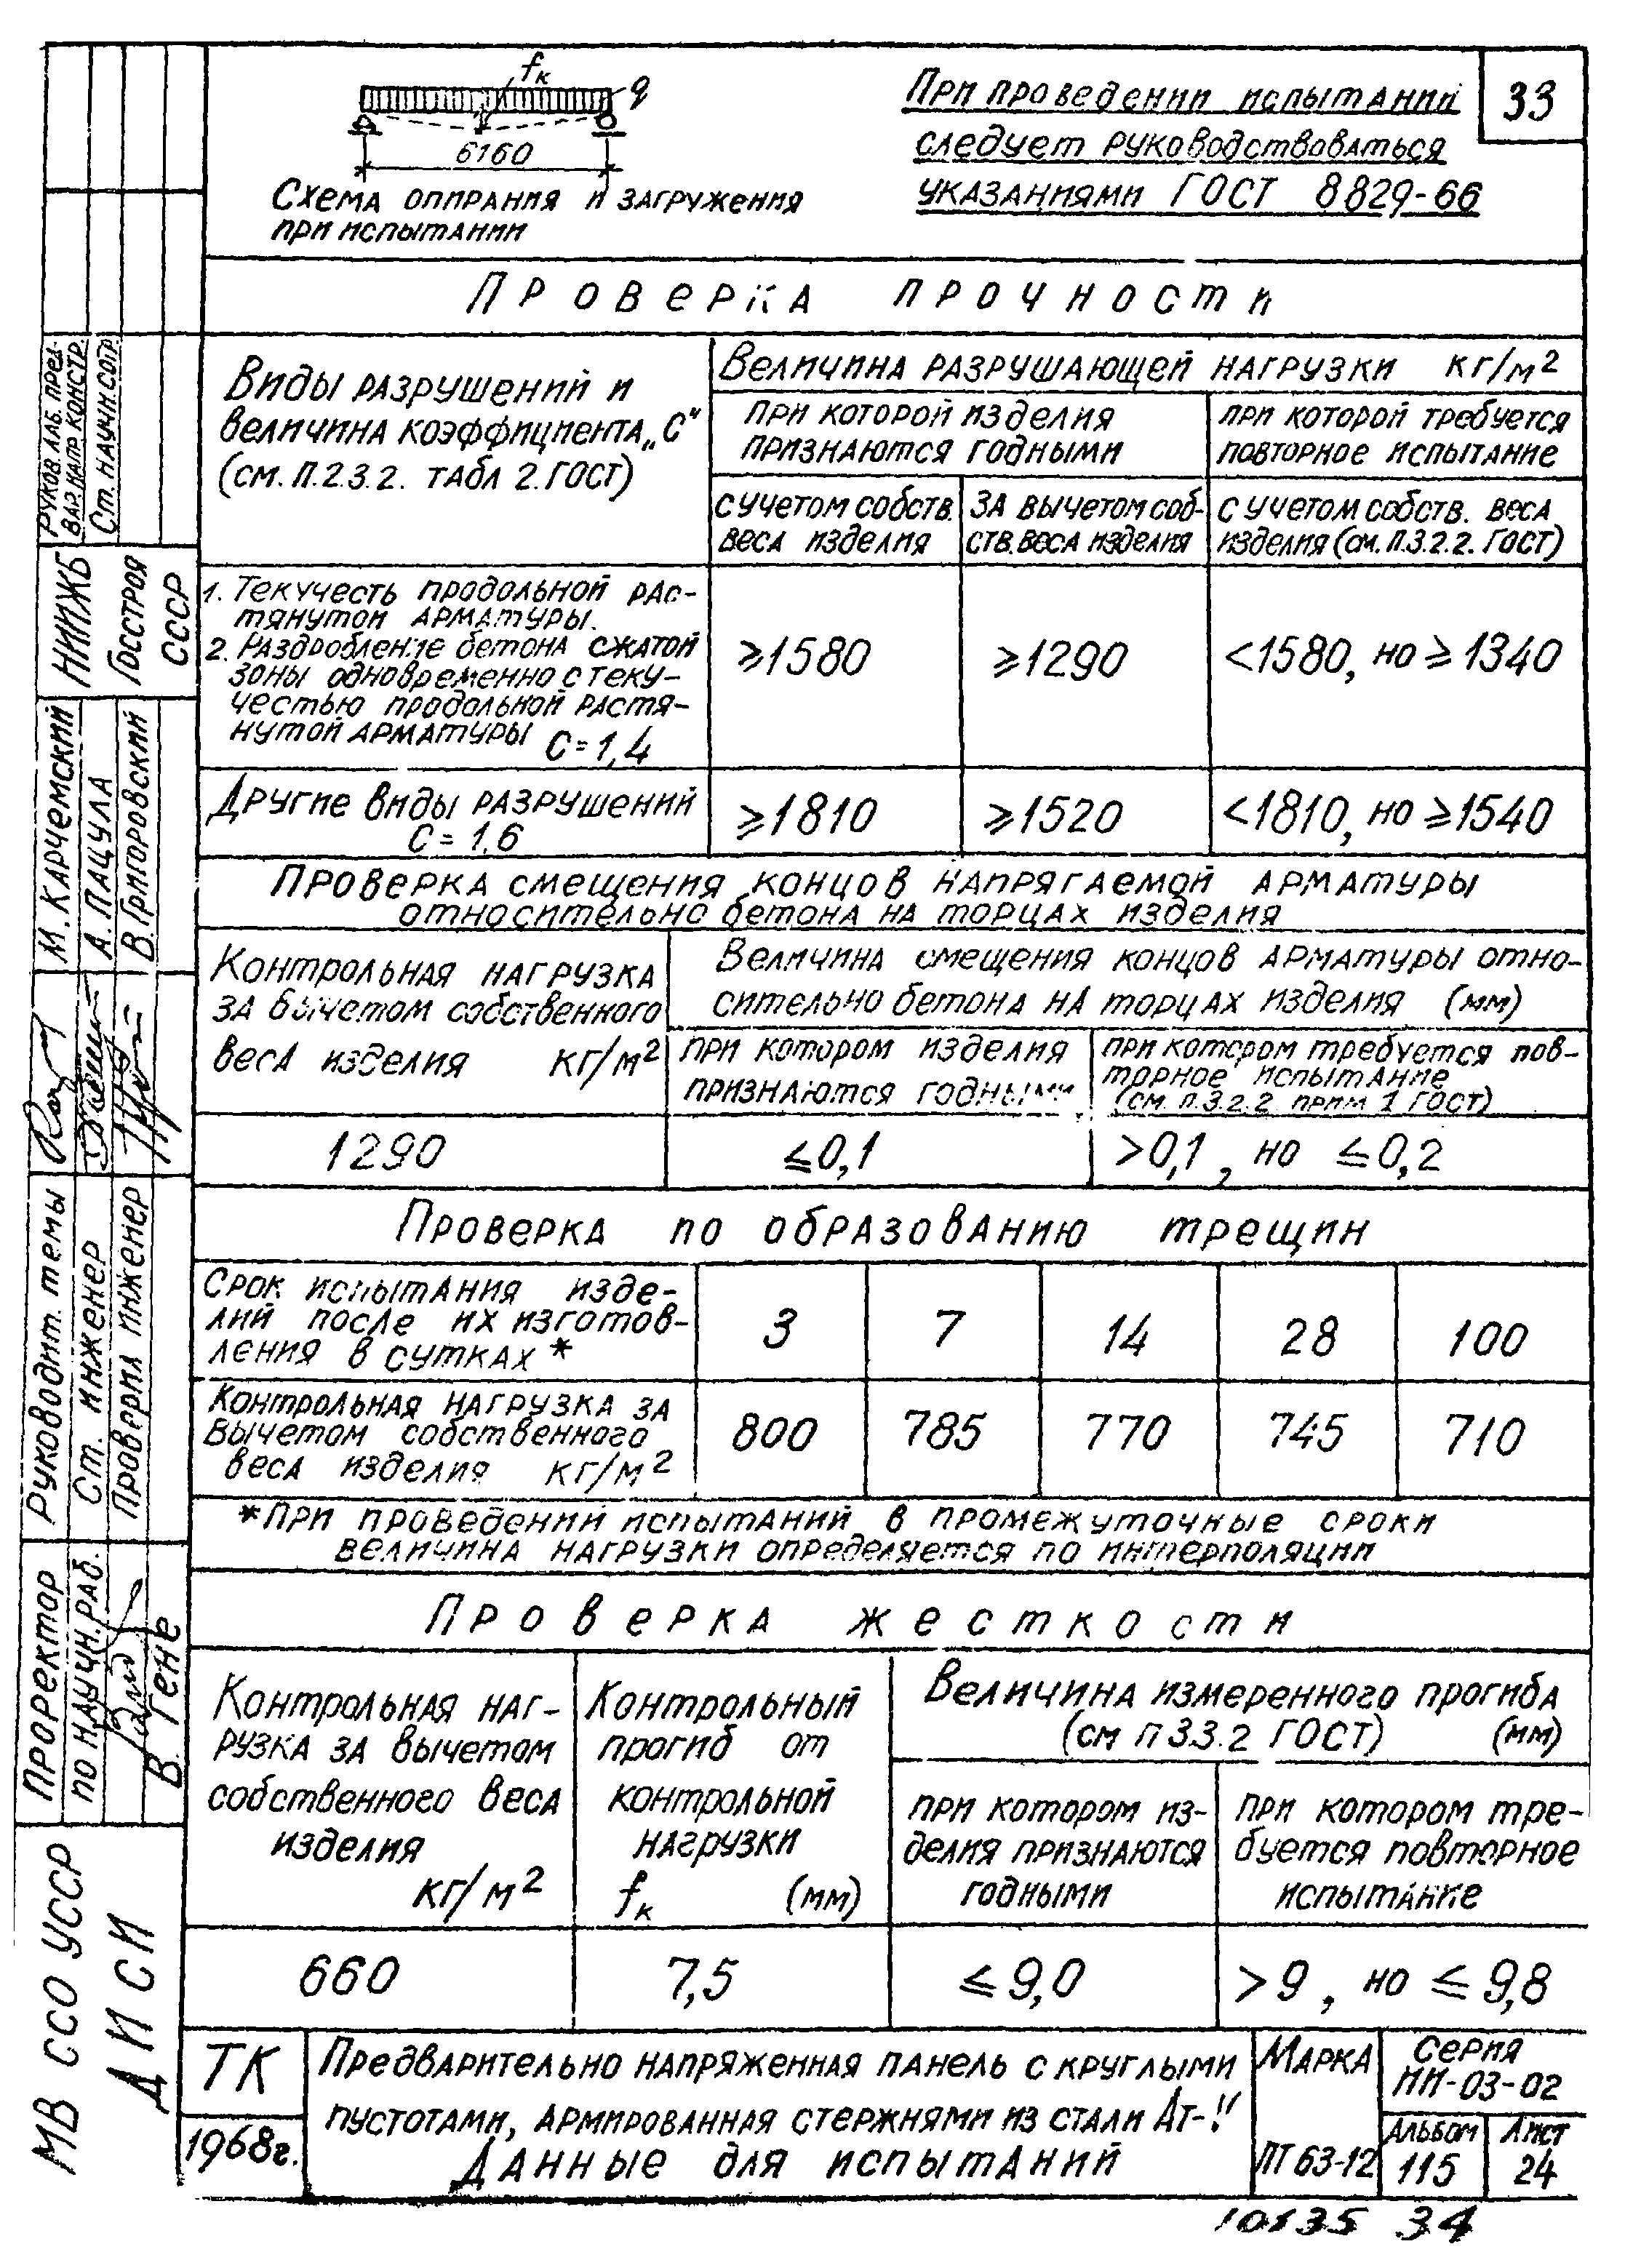 fк
q
6160
Схема опирания и загружения
при испытании
При проведении испытаний
следует руководствоваться
указаниями ГОСТ 8829-66
33
Проверка прочности
Виды разрушений и
величина коэффициента „С"
(см. п.2.3.2. табл 2. ГОСТ)
Величина разрушающей нагрузки кг/м²
при которой изделия
признаются годными
при которой требуется
повторное испытание
с учетом собств.
веса изделия
за вычетом соб-
ств. веса изделия
с учетом собств. веса
изделия (см. п.3.2.2. ГОСТ)
1. Текучесть продольной рас-
тянутой арматуры.
2. Раздробление бетона сжатой
зоны одновременно с теку-
честью продольной растя-
нутой арматуры С=1,4
≥1580
≥1290
<1580, но ≥1340
Другие виды разрушений
С=1,6
≥1810
≥1520
<1810, но ≥1540
Проверка смещения концов напрягаемой арматуры
относительно бетона на торцах изделия
Контрольная нагрузка
за вычетом собственного
веса изделия кг/м²
Величина смещения концов арматуры отно-
сительно бетона на торцах изделия (мм)
при котором изделия
признаются годными
при котором требуется пов-
торное испытание
(см. п.3.2.2 прим 1 ГОСТ)
1290
≤0,1
>0,1, но ≤0,2
Проверка по образованию трещин
Срок испытания изде-
лий после их изготов-
ления в сутках *
3
7
14
28
100
Контрольная нагрузка за
вычетом собственного
веса изделия кг/м²
800
785
770
745
710
*При проведении испытаний в промежуточные сроки
величина нагрузки определяется по интерполяции
Проверка жесткости
Контрольная наг-
рузка за вычетом
собственного веса
изделия
кг/м²
Контрольный
прогиб от
контрольной
нагрузки
fк (мм)
Величина измеренного прогиба
(см п 3.3.2 ГОСТ) (мм)
при котором из-
делия признаются
годными
при котором тре-
буется повторное
испытание
660
7,5
≤ 9,0
> 9, но ≤ 9,8
ТК
1968г.
Предварительно напряженная панель с круглыми
пустотами, армированная стержнями из стали Ат-
Данные для испытаний
Марка
ПТ 63-12
Серия
ИИ-03-02
Альбом
115
Лист
24
34
Руков. лаб. пред-
вар. напр. констр.
Ст. научн. сотр.
НИИЖБ
Госстроя
СССР
М. Карчемский
А. Пацула
В. Григоровский
Руководит. темы
Ст. инженер
Проверил инженер
Проректор
по научн. раб.
В. Гене
МВ ССО УССР
ДИСИ